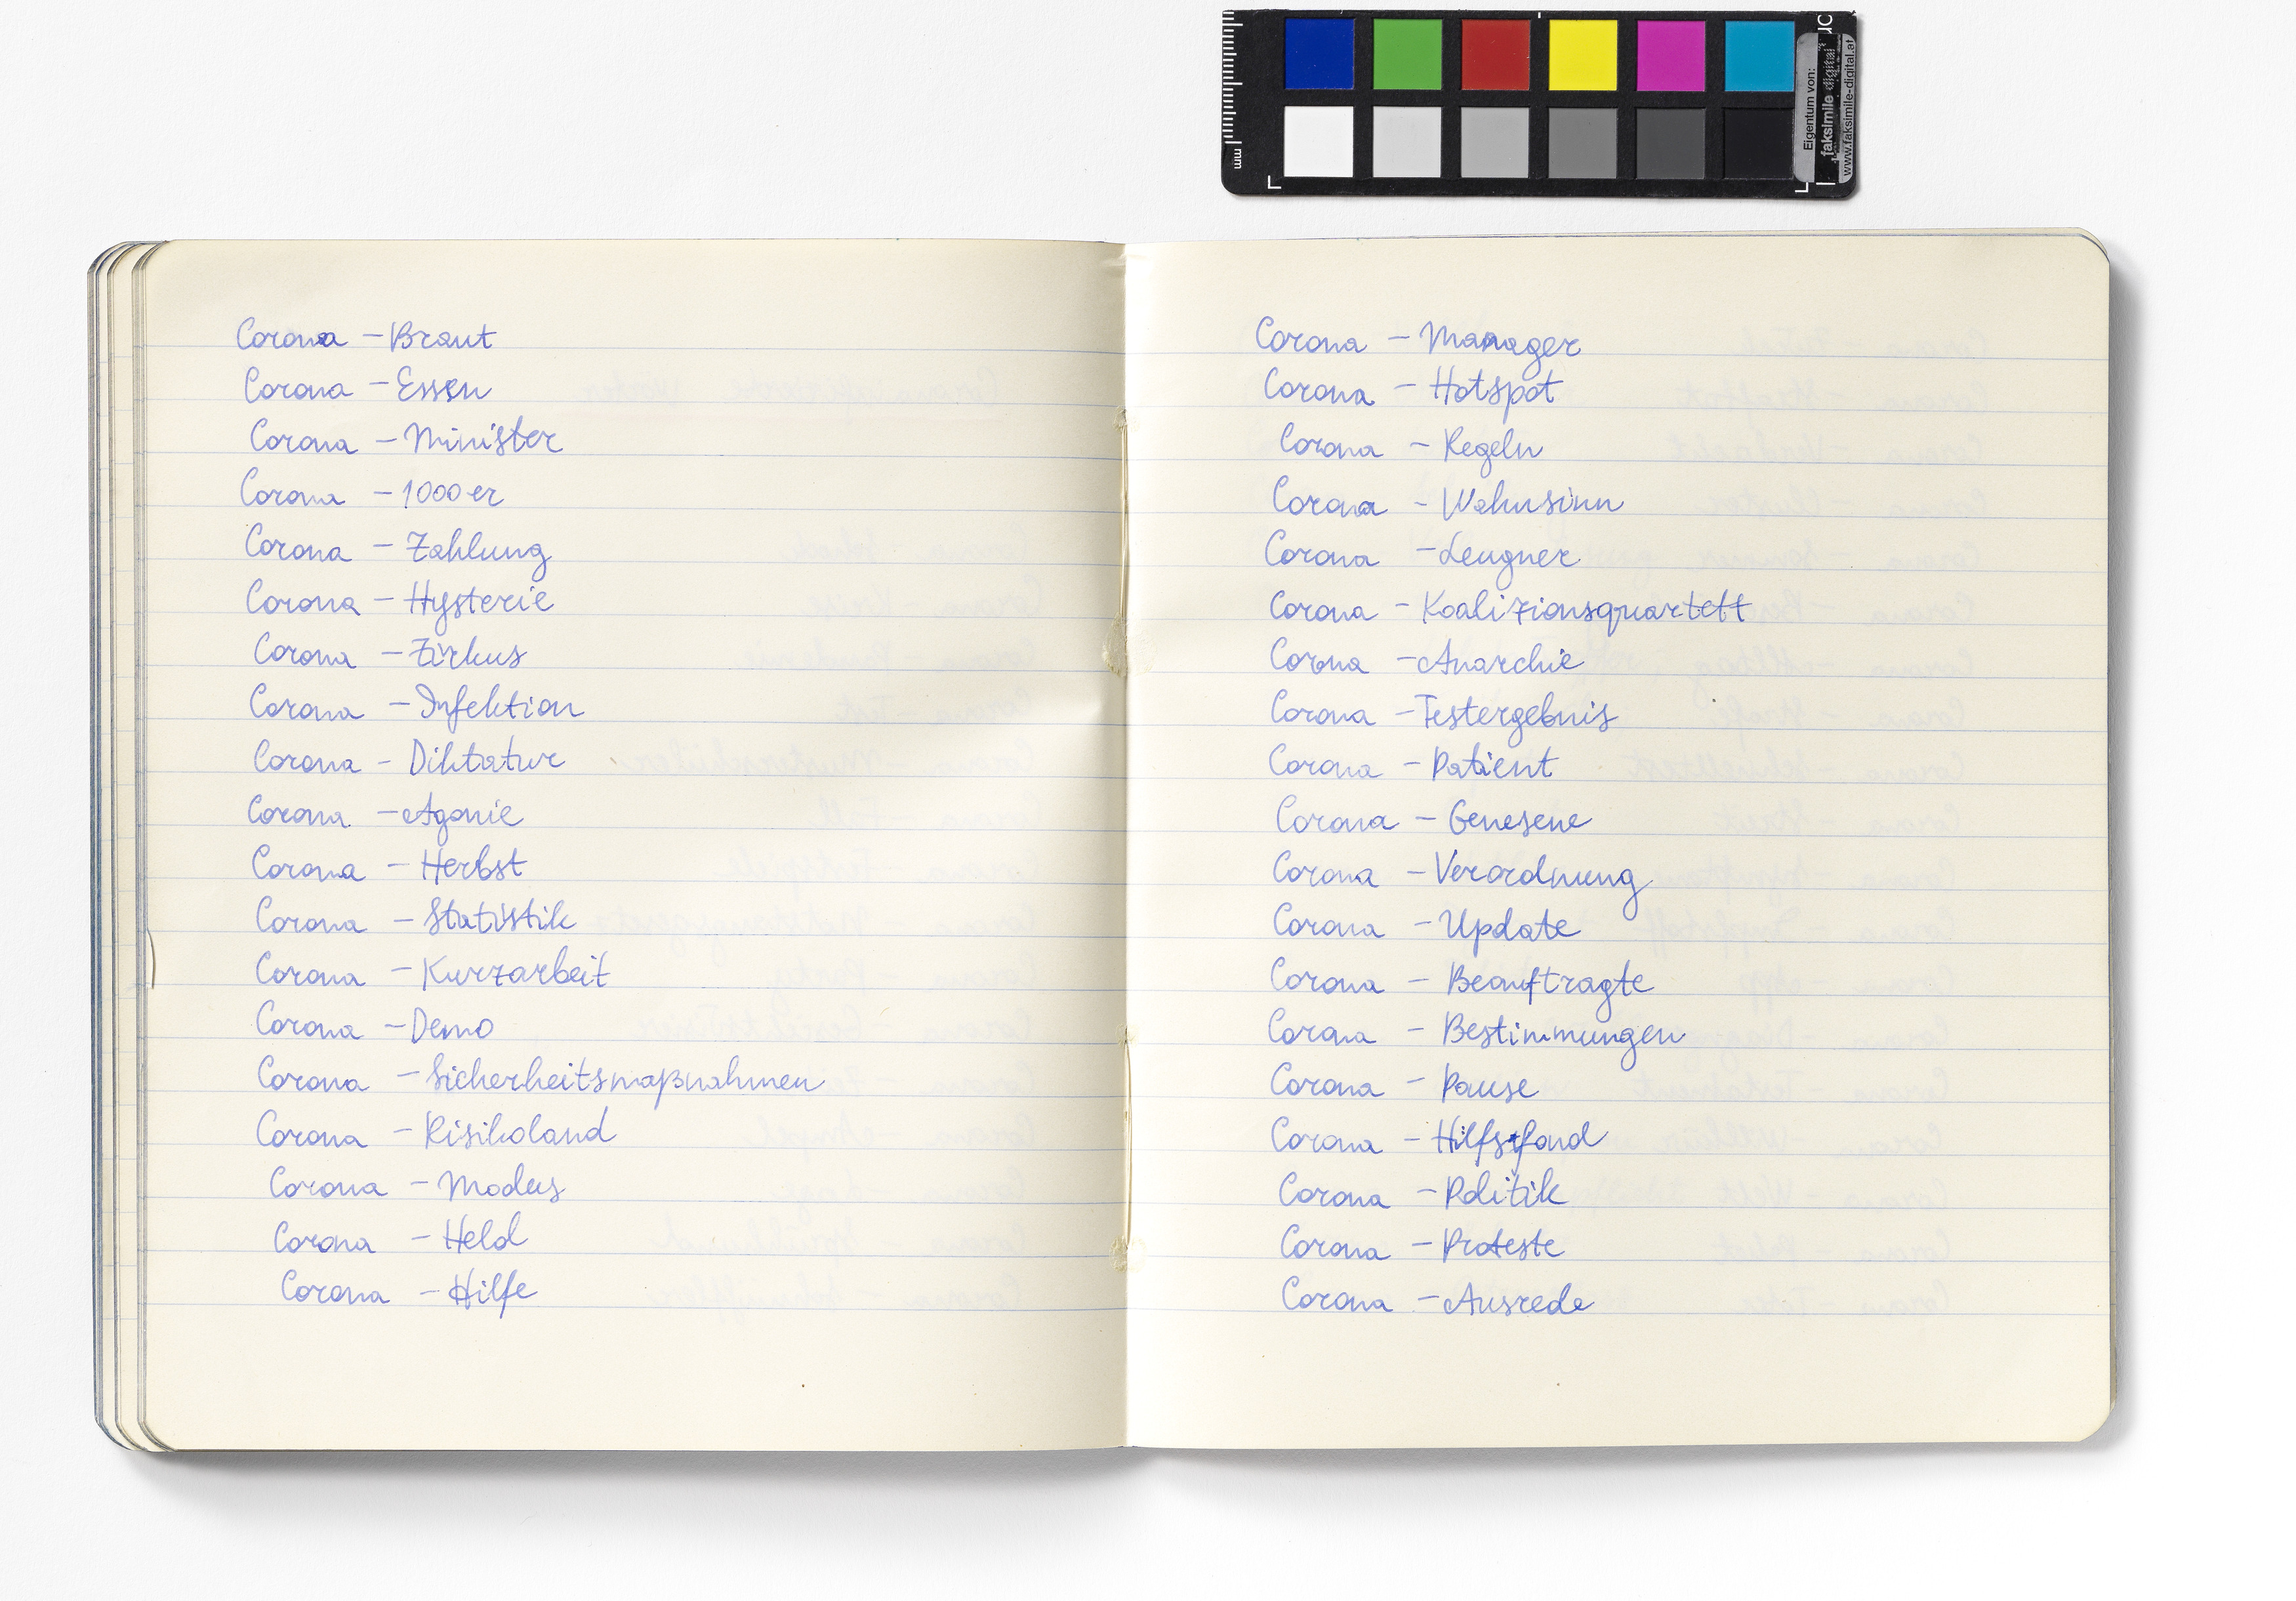 Corona – Braut
Corona – Essen
Corona – Minister
Corona – 1000er
Corona – Zahlung
Corona – Hysterie
Corona – Zirkus
Corona – Infektion
Corona – Diktatur
Corona – Agonie
Corona – Herbst
Corona – Statistik
Corona – Kurzarbeit
Corona – Demo
Corona – Sicherheitsmaßnahmen
Corona – Risikoland
Corona – Modus
Corona – Held
Corona – Hilfe
Corona – Manager
Corona – Hotspot
Corona – Regeln
Corona – Wahnsinn
Corona – Leugner
Corona – Koalizionsquartett
Corona – Anarchie
Corona – Testergebnis
Corona – Patient
Corona – Genesene
Corona – Verordnung
Corona – Update
Corona – Beauftragte
Corona – Bestimmungen
Corona – Pause
Corona – Hilfsfond
Corona – Politik
Corona – Proteste
Corona – Ausrede
mm
Eigentum von:
faksimile digital
www.faksimile-digital.at